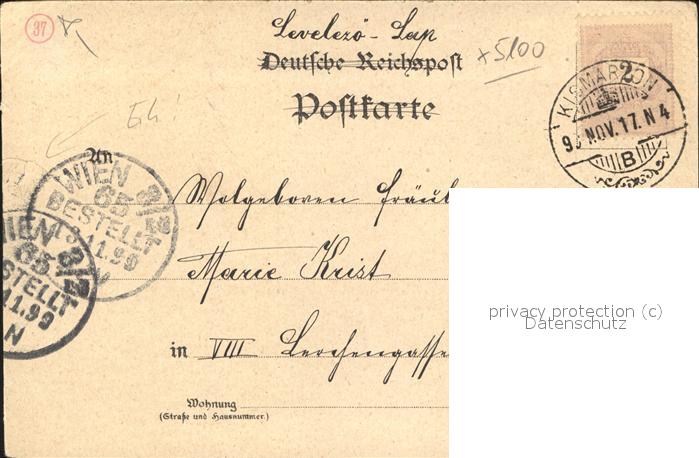 37
Levelező-Lap
Deutsche Reichspost
+5100
Postkarte
2
KISMARTON
9 NOV. 17. N 4
B
An
WIEN 3/2
65
BESTELLT
18.11.99
WIEN 3/2
65
BESTELLT
11.99
N
Wolgeboren Fräul
Marie Krist
in VIII Lerchengasse
Wohnung
(Straße und Hausnummer.)
privacy protection (c)
Datenschutz